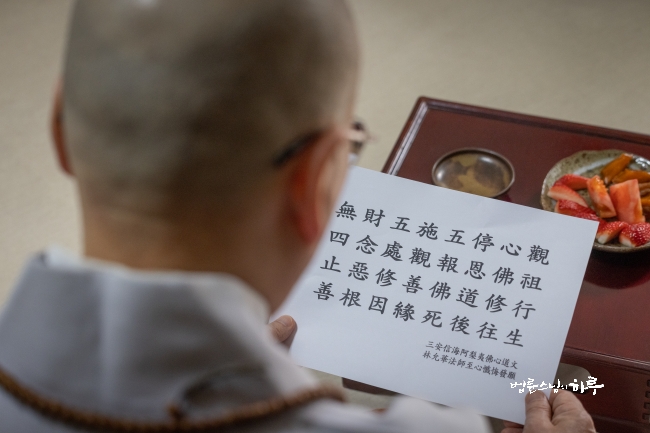 無財五施五停心觀
四念處觀報恩佛祖
止惡修善佛道修行
善根因緣死後往生
三安信海阿梨夷佛心道文
林允華法師至心懺悔發願
법륜스님의 하루